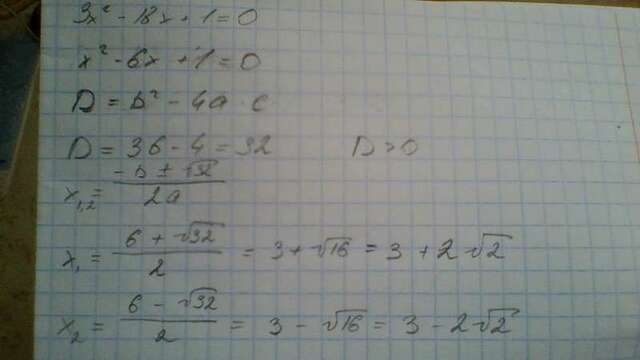 3x² - 18x + 1 = 0
x² - 6x + 1 = 0
D = b² - 4a · c
D = 36 - 4 = 32 D > 0
x₁,₂ = (-b ± √32) / 2a
x₁ = (6 + √32) / 2 = 3 + √16 = 3 + 2√2
x₂ = (6 - √32) / 2 = 3 - √16 = 3 - 2√2